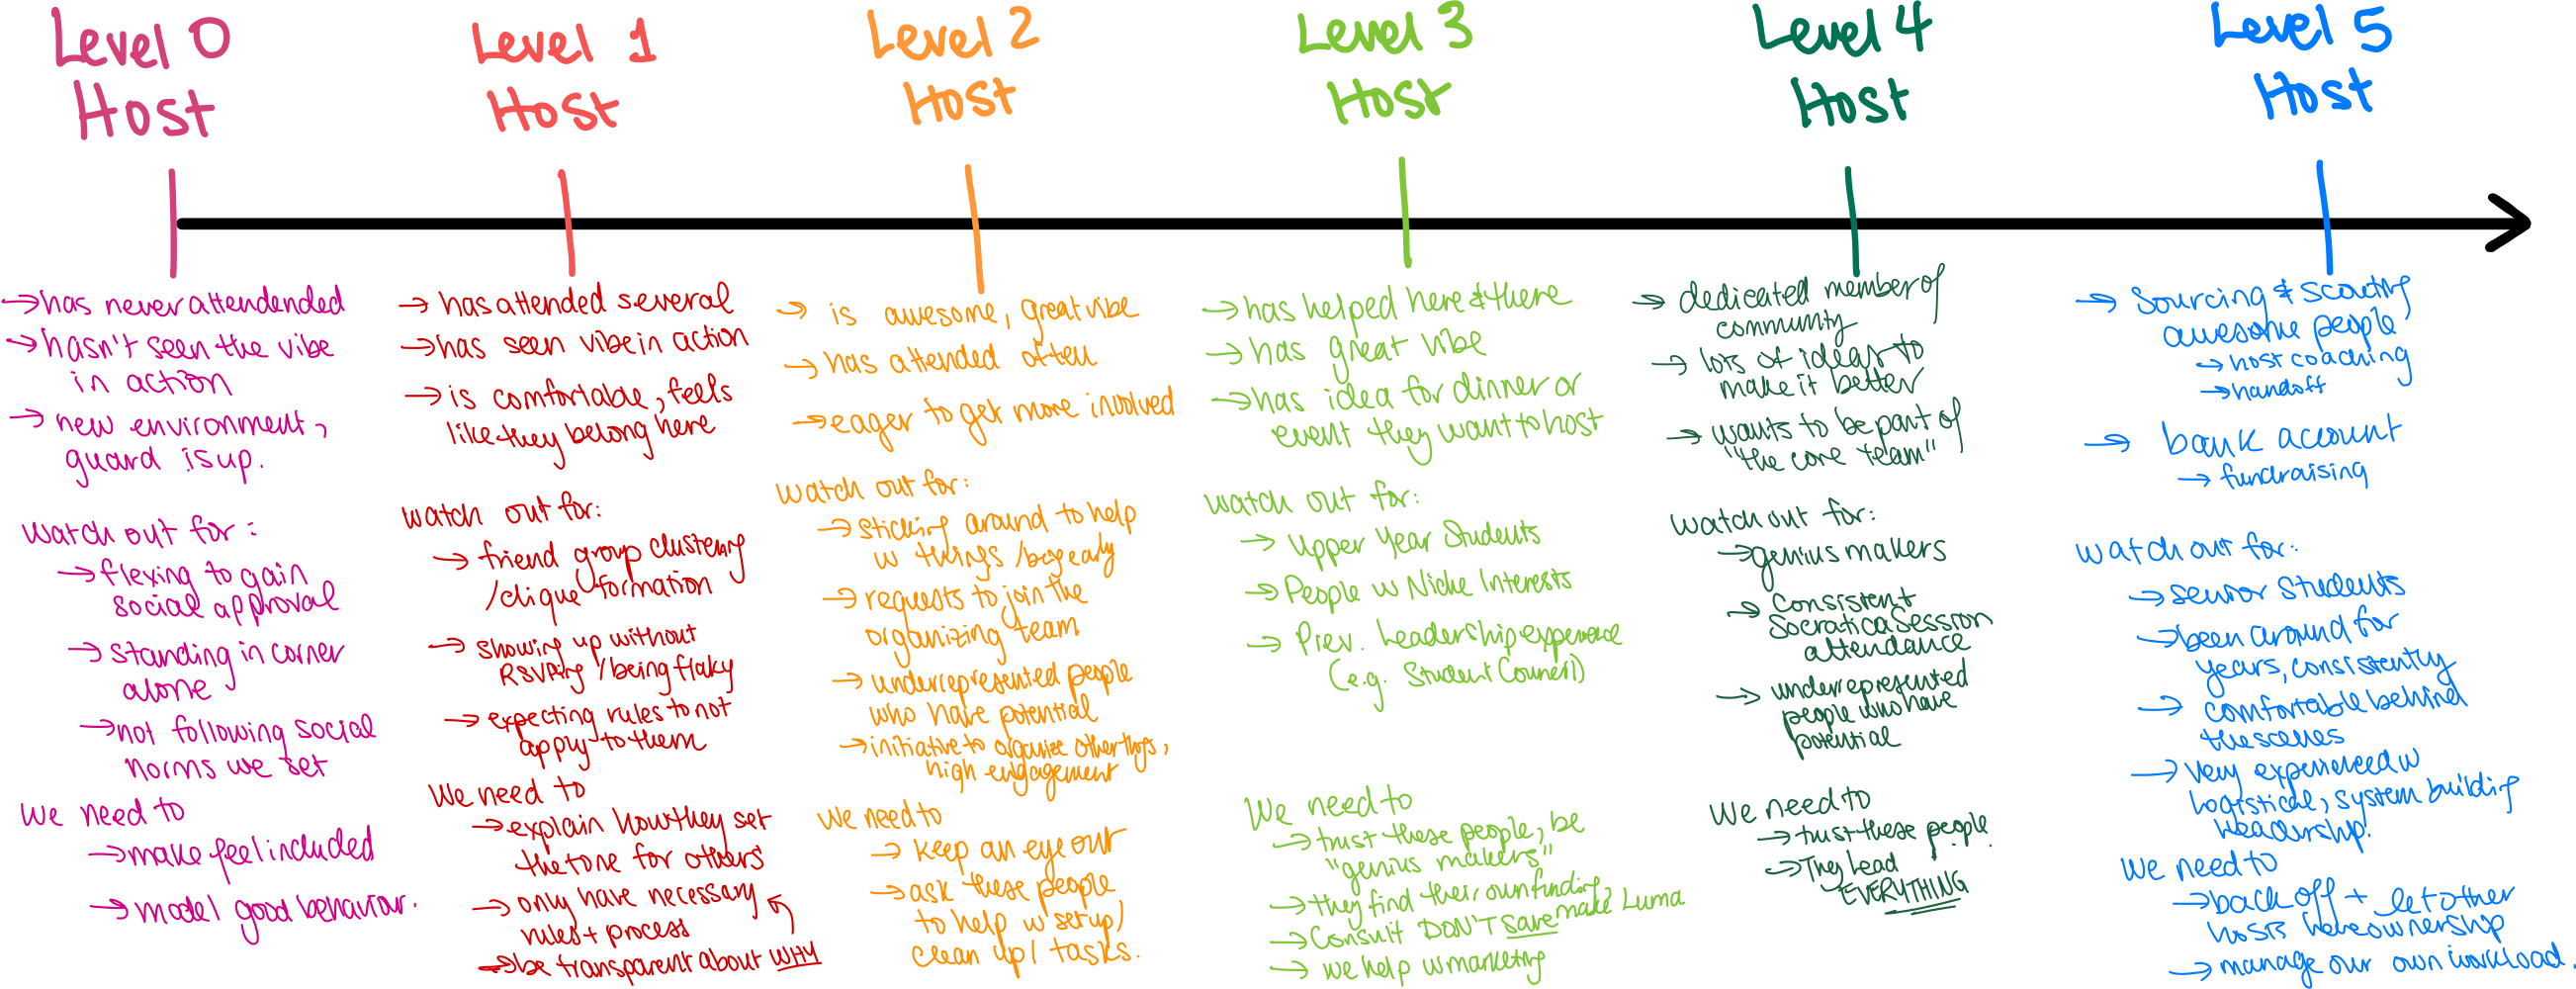 Level 0
Host
→has never attendended
→hasn't seen the vibe
in action
→new environment,
guard is up.
watch out for:
→flexing to gain
social approval
→standing in corner
alone
→not following social
norms we set
We need to
→make feel included
→model good behavior.
Level 1
Host
→has attended several
→has seen vibe in action
→is comfortable, feels
like they belong here
watch out for:
→friend group clustering
/clique formation
→showing up without
RSVPing /being flaky
→expecting rules to not
apply to them
We need to
→explain how they set
the tone for others
→only have necessary
rules + process
→be transparent about WHY
Level 2
Host
→is awesome, great vibe
→has attended often
→eager to get more involved
watch out for:
→sticking around to help
w things /being early
→requests to join the
organizing team
→underrepresented people
who have potential
→initiative to organize other things,
high engagement
We need to
→keep an eye out
→ask these people
to help w setup/
clean up/ tasks.
Level 3
Host
→has helped here & there
→has great vibe
→has idea for dinner or
event they want to host
watch out for:
→Upper Year Students
→People w Niche Interests
→Prev. Leadership experience
(e.g. Student Council)
We need to
→trust these people, be
"genius makers"
→they find their own funding, make Luma
→Consult DON'T save
→we help w marketing
Level 4
Host
→dedicated member of
community
→lots of ideas to
make it better
→wants to be part of
"the core team"
watch out for:
→genius makers
→Consistent
Socratica Session
attendance
→underrepresented
people who have
potential
We need to
→trust these people.
→They Lead
EVERYTHING
Level 5
Host
→Sourcing & scouting
awesome people
→host coaching
→handoff
→bank account
→fundraising
watch out for:
→senior students
→been around for
years, consistently
→comfortable behind
the scenes
→very experienced w
logistical, system building
leadership.
We need to
→back off + let other
hosts have ownership
→manage our own workload.